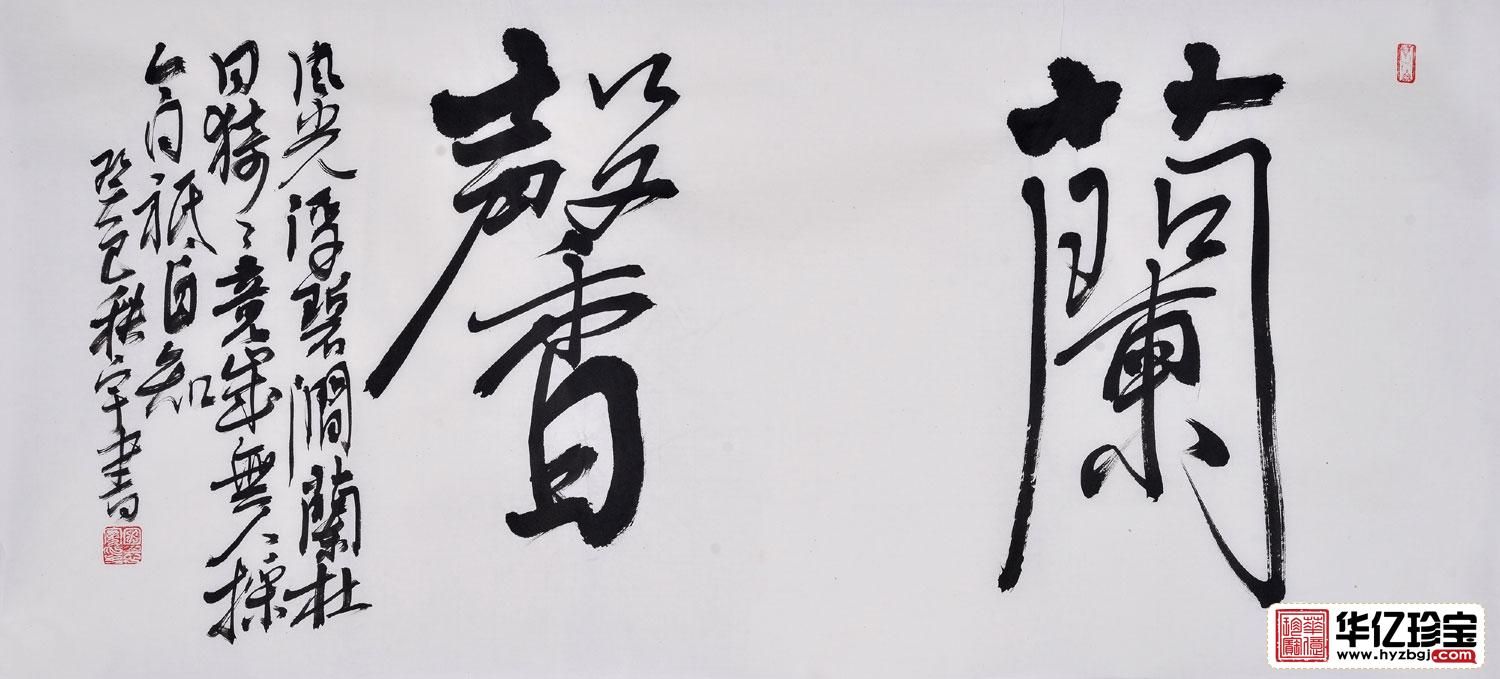 蘭馨
風光浮碧澗蘭杜
日猗〻竟歲無人採
含香祇自知
癸巳秋宇書
华亿珍宝
www.hyzbgj.com